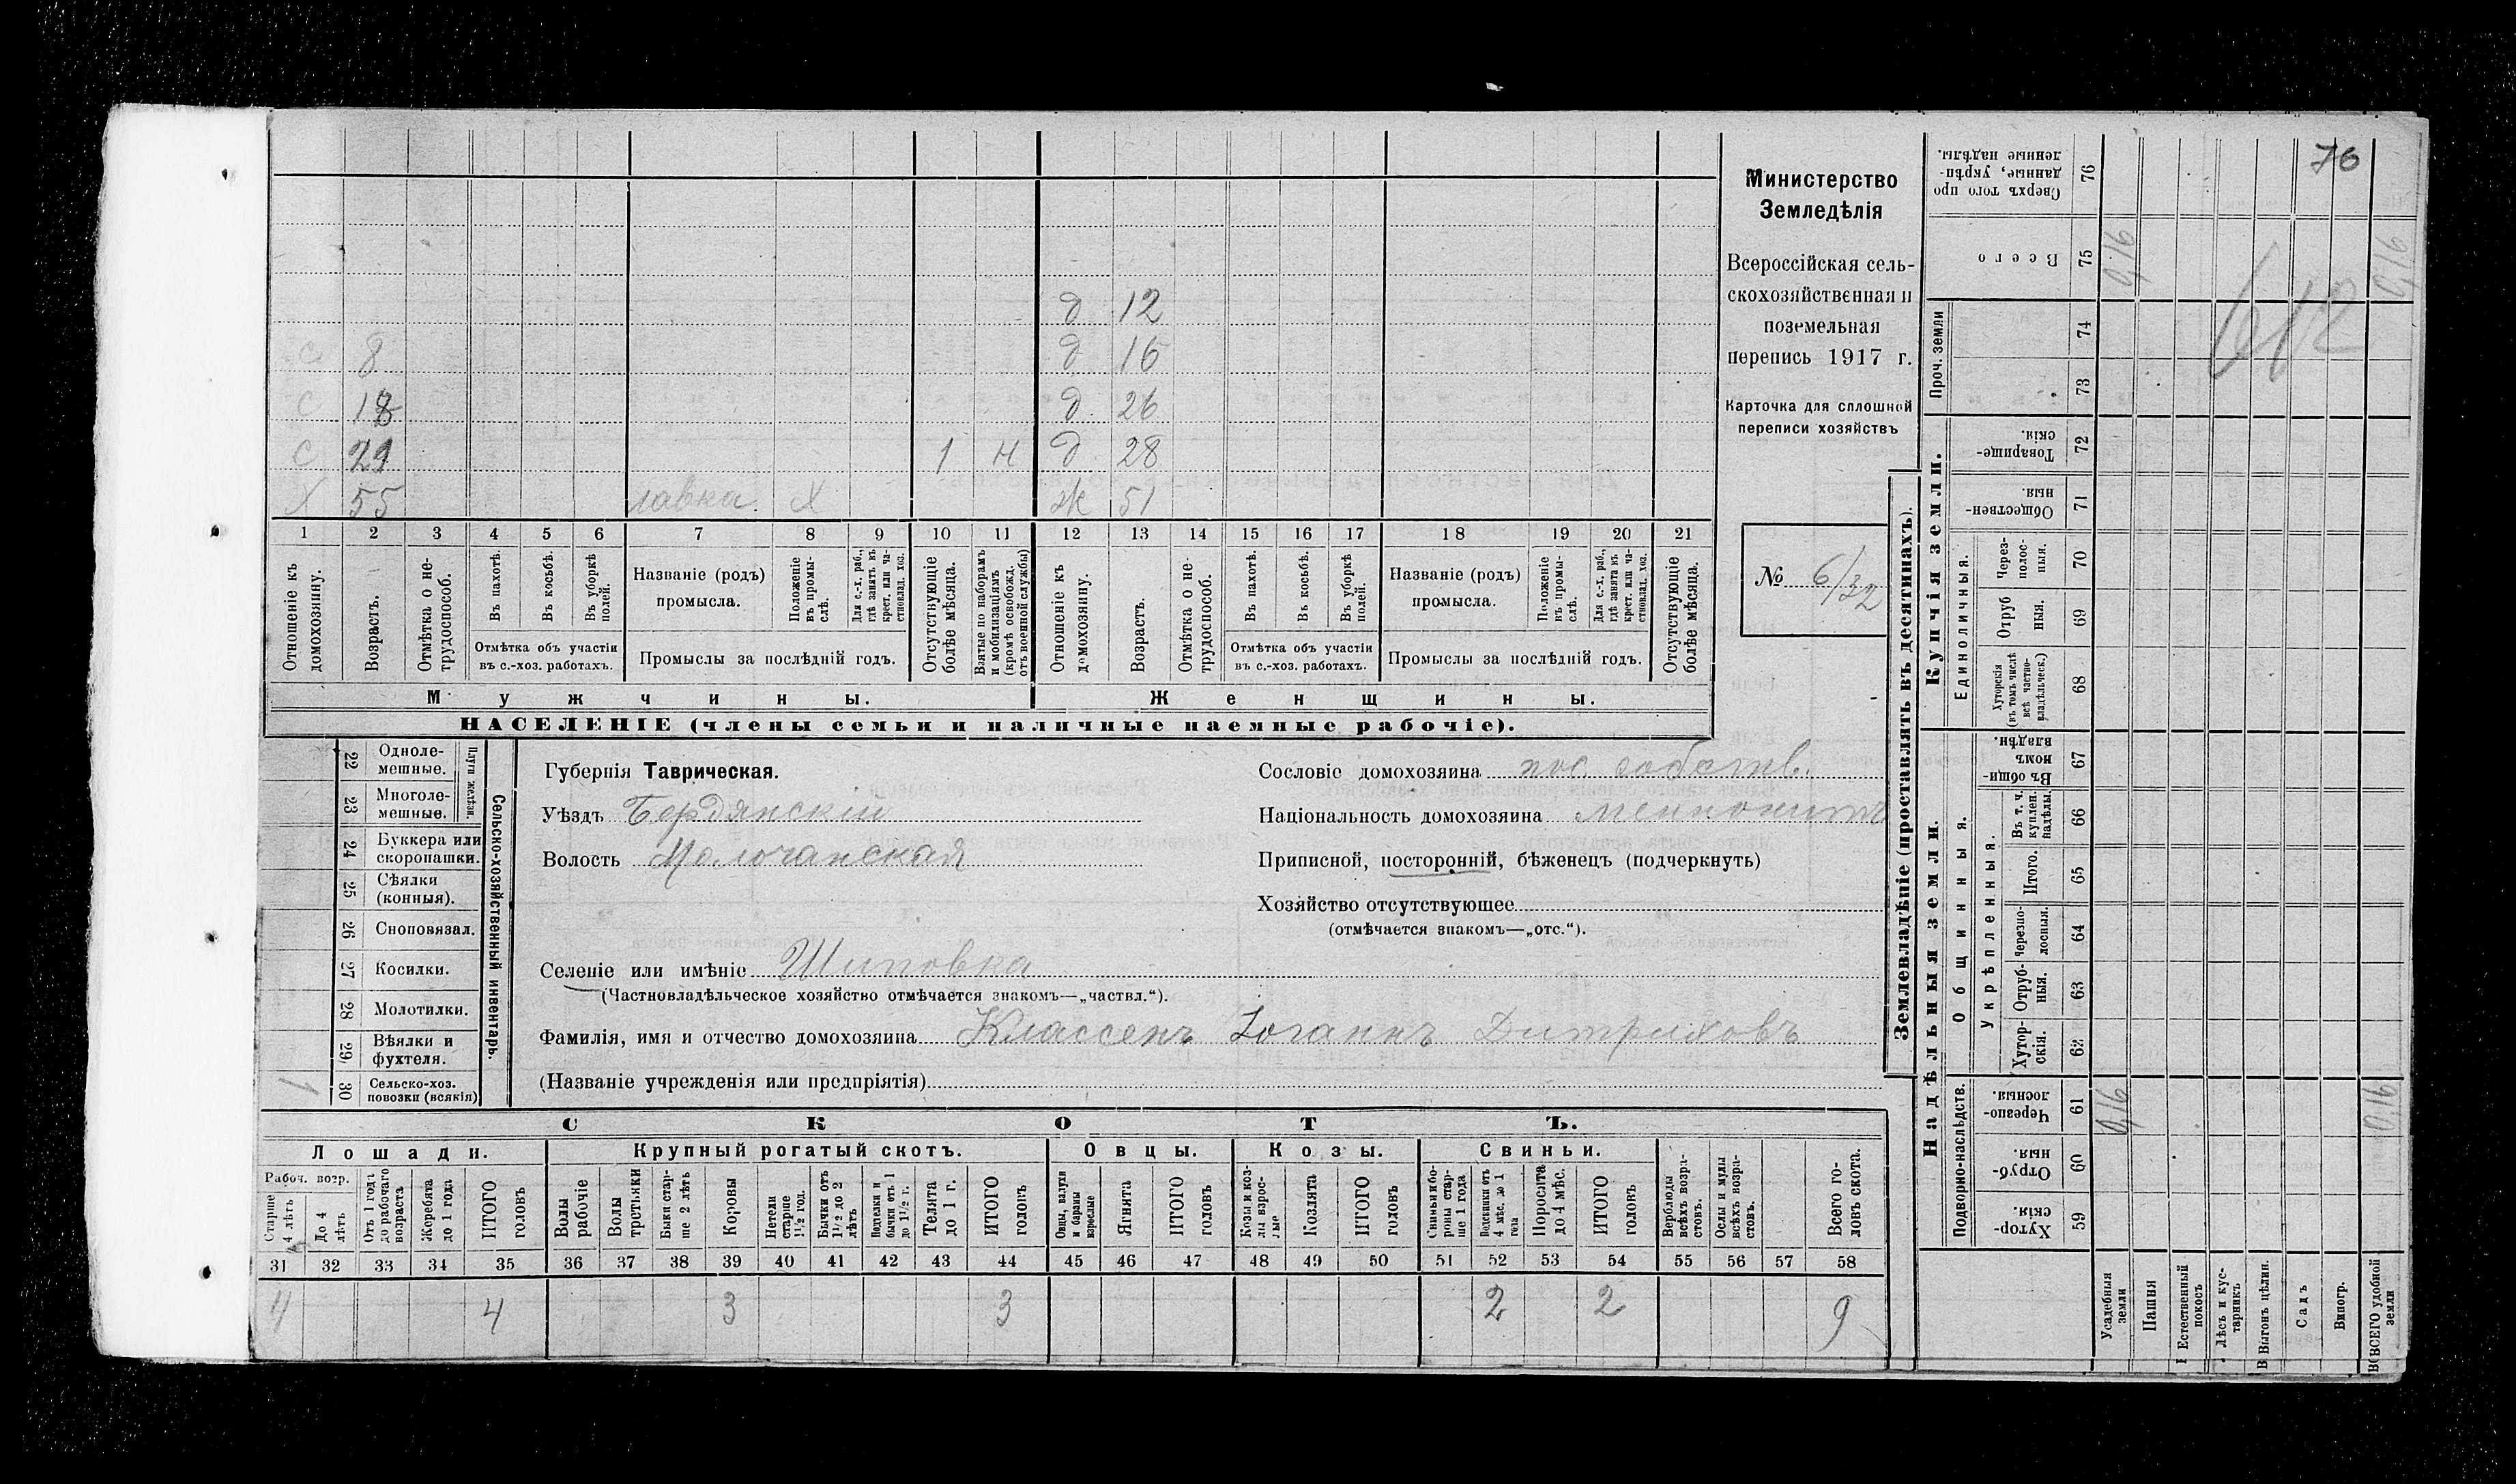 76
Министерство
Земледѣлія
Всероссійская сель-
скохозяйственная и
поземельная
перепись 1917 г.
Карточка для сплошной
переписи хозяйствъ
№ 6/32
д 12
с 8 д 16
с 18 д 26
с 29 1 н д 28
х 55 лавка. х ж 51
1 2 3 4 5 6 7 8 9 10 11 12 13 14 15 16 17 18 19 20 21
Отношеніе къ домохозяину.
Возрастъ.
Отмѣтка о не-трудоспособ.
Въ пахотѣ.
Въ косьбѣ.
Въ уборкѣ полей.
Отмѣтка объ участіи въ с.-хоз. работахъ.
Названіе (родъ) промысла.
Положеніе въ промы-слѣ.
Для с.-х. раб., гдѣ занятъ въ крест. или ча-стновлад. хоз.
Промыслы за послѣдній годъ.
Отсутствующіе болѣе мѣсяца.
Взятые по наборамъ и мобилизаціямъ (кромѣ освобожд. отъ военной службы)
Отношеніе къ домохозяину.
Возрастъ.
Отмѣтка о не-трудоспособ.
Въ пахотѣ.
Въ косьбѣ.
Въ уборкѣ полей.
Отмѣтка объ участіи въ с.-хоз. работахъ.
Названіе (родъ) промысла.
Положеніе въ промы-слѣ.
Для с.-х. раб., гдѣ занята въ крест. или ча-стновлад. хоз.
Промыслы за послѣдній годъ.
Отсутствующіе болѣе мѣсяца.
Мужчины. Женщины.
НАСЕЛЕНІЕ (члены семьи и наличные наемные рабочіе).
Сельско-хозяйственный инвентарь.
Плуги желѣзн.
22 Одноле-мешные.
23 Многоле-мешные.
24 Буккера или скоропашки.
25 Сѣялки (конныя).
26 Сноповязал.
27 Косилки.
28 Молотилки.
29 Вѣялки и фухтеля.
30 Сельско-хоз. повозки (всякія) 1
Губернія Таврическая.
Уѣздъ Бердянскій
Волость Молочанская
Сословіе домохозяина пос. собств.
Національность домохозяина меннонитъ
Приписной, посторонній, бѣженецъ (подчеркнуть)
Хозяйство отсутствующее
(отмѣчается знакомъ—„отс.“).
Селеніе или имѣніе Шиповка
(Частновладѣльческое хозяйство отмѣчается знакомъ—„частвл.“).
Фамилія, имя и отчество домохозяина Классенъ Іоганнъ Дитриховъ
(Названіе учрежденія или предпріятія)
СКОТЪ.
Лошади. Крупный рогатый скотъ. Овцы. Козы. Свиньи.
Рабоч. возр.
Старше 4 лѣтъ
До 4 лѣтъ
Отъ 1 года до рабочаго возраста
Жеребята до 1 года
ИТОГО головъ
Волы рабочіе
Волы третьяки
Быки стар-ше 2 лѣтъ
Коровы
Нетели старше 1½ год.
Бычки отъ 1½ до 2 лѣтъ
Подтелки и бычки отъ 1 до 1½ г.
Телята до 1 г.
ИТОГО головъ
Овцы, валухи и бараны взрослые
Ягнята
ИТОГО головъ
Козы и коз-лы взрос-лые
Козлята
ИТОГО головъ
Свиньи и бо-роны стар-ше 1 года
Подсвинки отъ 4 мѣс. до 1 года
Поросята до 4 мѣс.
ИТОГО головъ
Верблюды всѣхъ возра-стовъ.
Ослы и мулы всѣхъ возра-стовъ.
Всего го-ловъ скота.
31 32 33 34 35 36 37 38 39 40 41 42 43 44 45 46 47 48 49 50 51 52 53 54 55 56 57 58
4 4 3 3 2 2 9
Землевладѣніе (проставлять въ десятинахъ).
Надѣльныя земли.
Купчія земли.
Проч. земли
Подворно-наслѣдств.
Общинныя.
Укрѣпленныя.
Единоличныя.
Хутор-скія. 59
Отруб-ныя. 60
Черезпо-лосныя. 61 0,16 0,16
Хутор-скія. 62
Отруб-ныя. 63
Черезпо-лосныя. 64
Итого. 65
Въ т. ч. куплен. надѣлы. 66
Въ общин-номъ владѣн. 67
Хуторскія (въ томъ числѣ всѣ частно-владѣльческ.) 68
Отруб ныя. 69
Через-полос-ныя. 70
Обществен-ныя. 71
Товарище-скія. 72
73
74
Всего 75 0,16 0,16
Сверхъ того про данные, укрѣп-ленные надѣлы. 76
612
Усадебныя земли
Пашня
Естественный покосъ
Лѣсъ и кус-тарникъ
Выгонъ цѣлин.
Садъ
Виногр.
ВСЕГО удобной земли